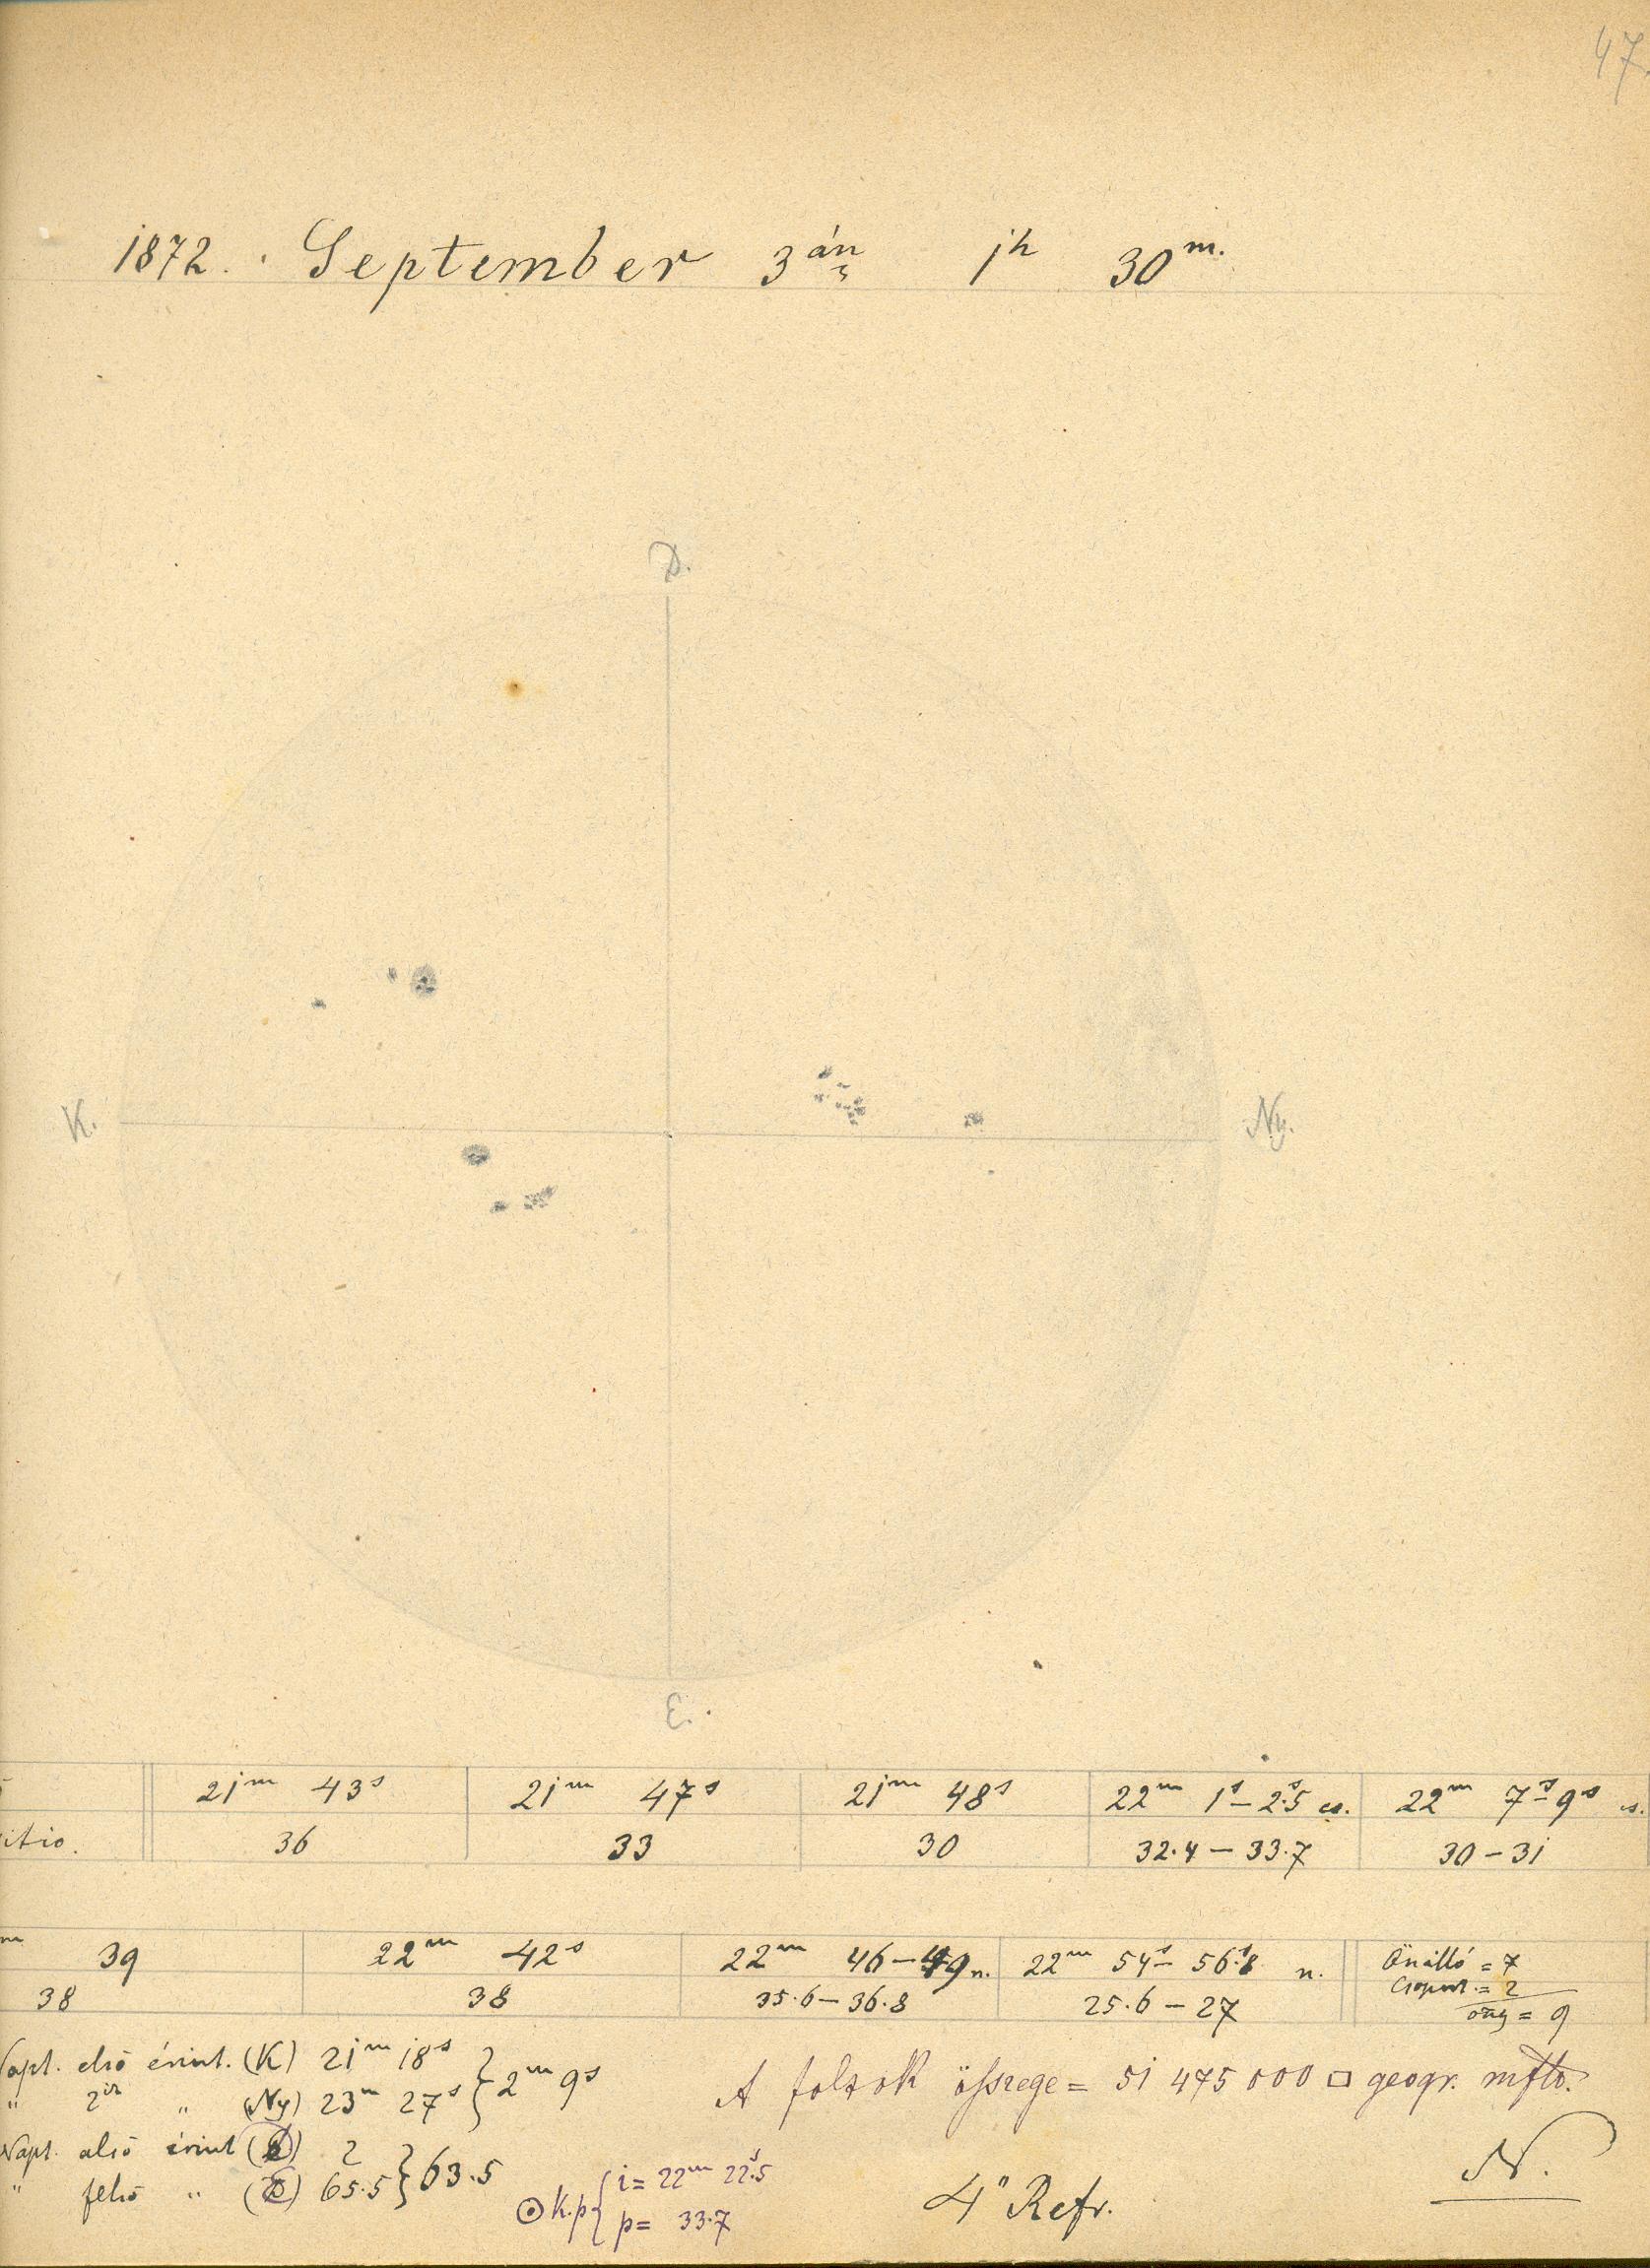 47.
1872. September 3án 1h 30m.
D.
K. Ny.
É.
21m 43s 21m 47s 21m 48s 22m 1s–2.5s cs. 22m 7s–9s cs.
itio. 36 33 30 32.4–33.7 30–31
m 39 22m 42s 22m 46–49 n. 22m 54s–56.8s n. Önálló = 7
38 38 35.6–36.8 25.6–27 Csoport. = 2
össz = 9
Napt. első érint. (K) 21m 18s } 2m 9s
" 2ik " (Ny) 23m 27s
A foltok összege = 51 475 000 □ geogr. mftö.
Napt. alsó érint 2 } 63.5
" felső " 65.5
⊙ k.p { i = 22m 22.5s
p = 33.7
4" Refr.
N.